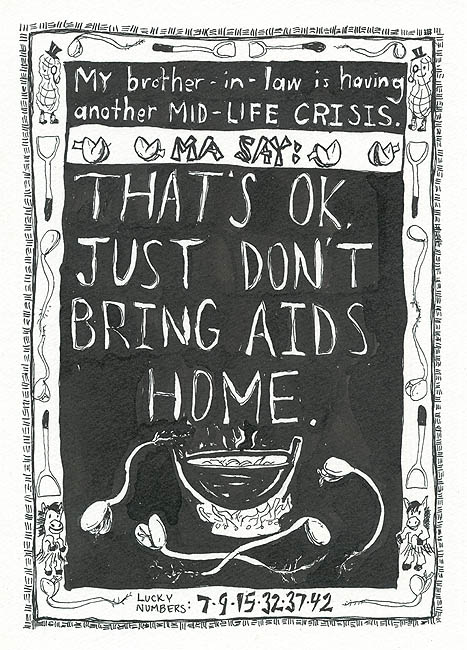 My brother-in-law is having
another MID-LIFE CRISIS.
MA SAY:
THAT'S OK.
JUST DON'T
BRING AIDS
HOME.
LUCKY
NUMBERS: 7·9·15·32·37·42